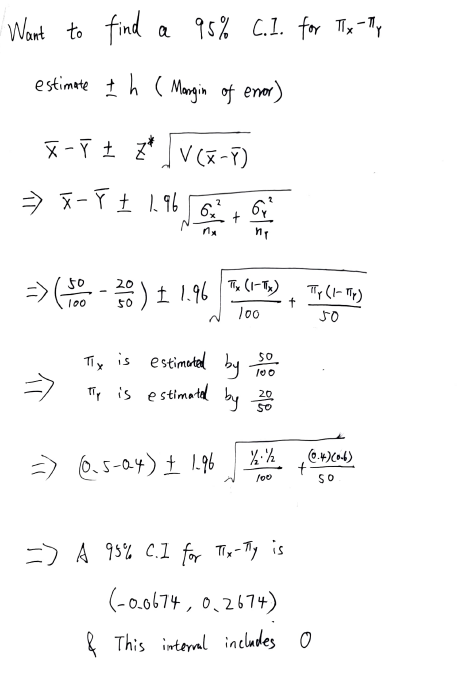 Want to find a 95% C.I. for πx-πy
estimate ± h (Margin of error)
X̄-Ȳ ± Z* √V(X̄-Ȳ)
⇒ X̄-Ȳ ± 1.96 √(σx²/nx + σy²/ny)
⇒ (50/100 - 20/50) ± 1.96 √(πx(1-πx)/100 + πy(1-πy)/50)
πx is estimated by 50/100
⇒ πy is estimated by 20/50
⇒ (0.5-0.4) ± 1.96 √(½·½/100 + (0.4)(0.6)/50)
⇒ A 95% C.I for πx-πy is
(-0.0674, 0.2674)
& This interval includes 0